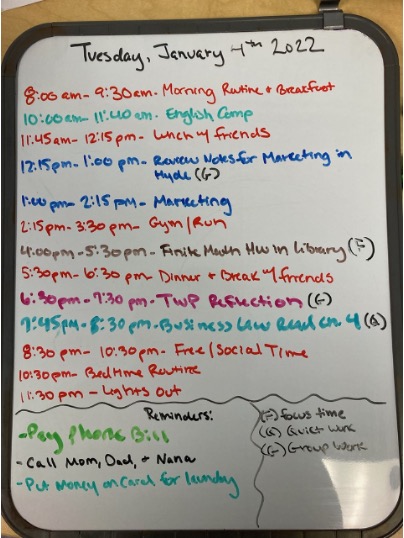 Tuesday, January 4th 2022
8:00am - 9:30am - Morning Routine + Breakfast
10:00am - 11:40am - English Comp
11:45am - 12:15pm - Lunch w/ friends
12:15pm - 1:00 pm - Review Notes for Marketing in
Hyde (G)
1:00 pm - 2:15 pm - Marketing
2:15pm - 3:30pm - Gym/Run
4:00pm - 5:30pm - Finite Math HW in Library (F)
5:30pm - 6:30pm - Dinner + Break w/ friends
6:30pm - 7:30pm - TWP Reflection (G)
7:45pm - 8:30pm - Business Law Read Ch. 4 (Q)
8:30 pm - 10:30pm - Free/Social Time
10:30pm - Bedtime Routine
11:30 pm - Lights Out
Reminders:
- Pay Phone Bill
- Call Mom, Dad, + Nana
- Put Money on Card for laundry
(F) focus time
(Q) Quiet Work
(G) Group Work